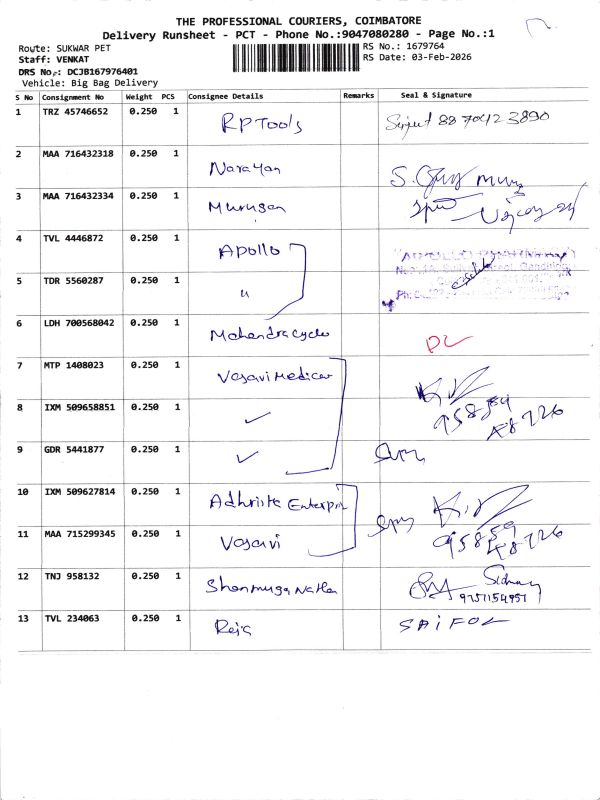 THE PROFESSIONAL COURIERS, COIMBATORE
Delivery Runsheet - PCT - Phone No.:9047080280 - Page No.:1
Route: SUKWAR PET
RS No.: 1679764
Staff: VENKAT
RS Date: 03-Feb-2026
DRS No.: DCJB167976401
Vehicle: Big Bag Delivery
S No Consignment No Weight PCS Consignee Details Remarks Seal & Signature
1 TRZ 45746652 0.250 1 RP Tools
2 MAA 716432318 0.250 1 Narayan
3 MAA 716432334 0.250 1 Murugan
4 TVL 4446872 0.250 1 Apollo
5 TDR 5560287 0.250 1 "
6 LDH 700568042 0.250 1 Mahendra Cycle DC
7 MTP 1408023 0.250 1 Vasavi Medical
8 IXM 509658851 0.250 1 ✓
9 GDR 5441877 0.250 1 ✓
10 IXM 509627814 0.250 1
11 MAA 715299345 0.250 1 Vasavi
12 TNJ 958132 0.250 1 9751154957
13 TVL 234063 0.250 1 SAIFOL